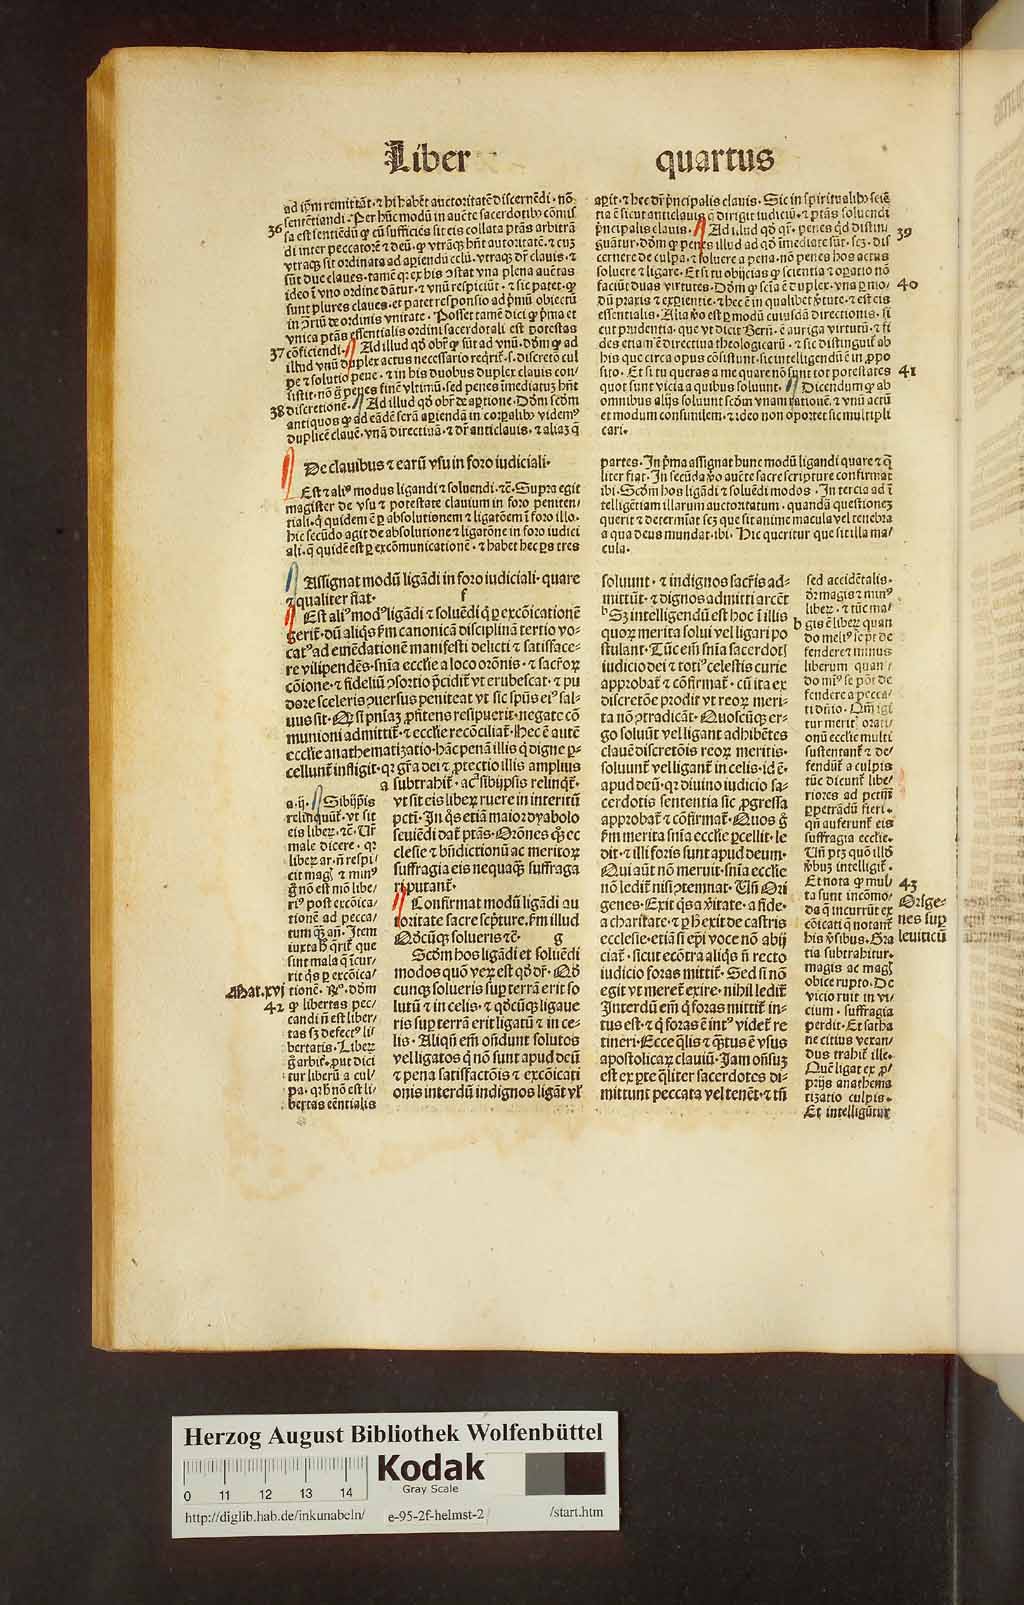 Liber quartus
ad ip̄m remittāt · ⁊ hi habēt auctoritatē discernēdi · nō
sentētiandi · Per hūc modū in auc̄te sacerdotibꝰ cōmis
36
sa est sentiēdū ꝙ cū sufficiēs sit eis collata ptās arbitrā
di inter peccatorē ⁊ deū · ꝙ vtrāqꝫ hn̄t autoritatē · ⁊ cuꝫ
vtraqꝫ sit ordinata ad aꝑiendū celū · vtraqꝫ dr̄ clauis · ⁊
sūt due claues · tamē qꝛ ex his ↄstat vna plena auc̄tas
ideo ī vno ordine dātur · ⁊ vnū respiciūt · ⁊ sic patet · ꝙ
sunt plures claues · et patet responsio ad p̄mū obiectū
in ↄ̄riū de ordinis vnitate · Posset tamē dici ꝙ p̄ma et
vnica ptās essentialis ordini sacerdotali est potestas
cōficiendi · Ad illud qd̄ obr̄ ꝙ sūt ad vnū · dōm̄ ꝙ ad
37
illud vnū duplex actus necessario reqrit̄ · s · discretō cul
pe ⁊ solutio pene · ⁊ in his duobus duplex clauis con/
sistit · nō ḡ penes finē vltimū · sed penes īmediatuꝫ hn̄t
discretionē · Ad illud qd̄ obr̄ de aꝑtione · Dōm̄ scōm
38
antiquos ꝙ ad eādē serā aꝑiendā in corꝑalibꝰ videmꝰ
duplicē clauē · vnā directiuā · ⁊ dr̄ anticlauis · ⁊ aliaꝫ q̄
aꝑit · ⁊ hec dr̄ p̄ncipalis clauis · Sic in spiritualibꝰ sciē
tia ē sicut anticlauis q̄ dirigit iudiciū · ⁊ ptās soluendi
p̄ncipalis clauis · Ad illud qd̄ qr̄ · penes qd̄ distin/
39
guātur · dōm̄ ꝙ penes illud ad qd̄ īmediate sūt · scꝫ · dis
cernere de culpa · ⁊ soluere a pena · nō penes hos actus
soluere ⁊ ligare · Et si tu obijcias ꝙ scientia ⁊ oꝑatio nō
faciūt duas virtutes · Dōm̄ ꝙ sciā ē duplex · vna ꝑ mo/
40
dū praxis ⁊ exꝑientie · ⁊ hec ē in qualibet ꝟtute · ⁊ est eis
essentialis · Alia ꝟo est ꝑ modū cuiusdā directionis · si
cut prudentia · que vt dicit Bern̄ · ē auriga virtutū · ⁊ fi
des etiā nē directiua theologicarū · ⁊ sic distinguit̄ ab
his que circa opus cōsistunt · sic intelligendū ē in ꝓpo
sito · Et si tu queras a me quare nō sunt tot potestates
41
quot sunt vicia a quibus soluunt · Dicendum ꝙ ab
omnibus alijs soluunt scōm vnam rationē · ⁊ vnū actū
et modum consimilem · ⁊ ideo non oportet sic multipli
cari ·
De clauibus ⁊ earū vsu in foro iudiciali ·
Est ⁊ aliꝰ modus ligandi ⁊ soluendi · ⁊c̄ · Supra egit
magister de vsu ⁊ potestate clauium in foro peniten/
tiali · q̄ quidem ē ꝑ absolutionem ⁊ ligatōem ī foro illo ·
hic secūdo agit de absolutione ⁊ ligatōne in foro iudici
ali · q̄ quidē est ꝑ excōmunicationē · ⁊ habet hec ꝑs tres
partes · In p̄ma assignat hunc modū ligandi quare ⁊ q̄
liter fiat · In secūda ꝟo auc̄te sacre scripture confirmat
ibi · Scōm hos ligādi ⁊ soluēdi modos · In tercia ad ī
telligētiam illarum auctoritatum · quandā questionеꝫ
querit ⁊ determīat scꝫ que sit anime macula vel tenebra
a qua deus mundat · ibi · Hic queritur que sit illa ma/
cula ·
Assignat modū ligādi in foro iudiciali · quare
⁊ qualiter fiat · f
Est aliꝰ modꝰ ligādi ⁊ soluēdi q̄ ꝑ excōicationē
gerit̄ · dū aliq̄s ẜm canonicā disciplinā tertio vo/
catꝰ ad emēdationē manifesti delicti ⁊ satisface/
re vilipendēs · snīa ecclīe a loco orōnis · ⁊ sacr̄oꝝ
cōione · ⁊ fideliū ↄsortio p̄cidit̄ vt erubescat · ⁊ pu
dore sceleris ↄuersus peniteat vt sic spūs eiꝰ sal/
uus sit · Qꝛ si pn̄iaꝫ ꝓfitens resipuerit · negate cō
munioni admittit̄ · ⁊ ecclīe recōciliat̄ · Hec ē autē
ecclīe anathematizatio · hāc penā illis q̄ digne ꝑ/
cellunt̄ infligit · qꝛ gr̄a dei ⁊ ꝓtectio illis amplius
a subtrahit̄ · ac sibijpsis relinqt̄ ·
vt sit eis liberꝫ ruere in interitū
pctī · In q̄s etiā maior dyabolo
seuiēdi dat̄ ptās · Orōnes q̄ꝫ ec
clesie ⁊ bn̄dictionū ac meritoꝝ
suffragia eis nequaqꝫ suffraga
ri putant̄ ·
Confirmat modū ligādi au
toritate sacre scpture · ẜm illud
Qd̄cūqꝫ solueris ⁊c̄ · g
Scōm hos ligādi et soluēdi
modos quō veꝝ est qd̄ dr̄ · Qd̄
cunqꝫ solueris suꝑ terrā erit so
lutū ⁊ in celis · ⁊ qd̄cūqꝫ ligaue
ris suꝑ terrā erit ligatū ⁊ in ce/
lis · Aliqn̄ em̄ ondunt solutos
vel ligatos q̄ nō sunt apud deū
⁊ pena satisfactōis ⁊ excōicati
onis interdū indignos ligāt vl̄
a · ij · Sibijpsis
relinquūt̄ · vt sit
eis liberꝫ · ⁊c̄ · Vr̄
male dicere · qꝛ
liberꝫ ar · n̄ respi/
cit maḡ ⁊ minꝰ
ḡ nō est mō libe/
riꝰ post excōica/
tionē ad pecca/
tum qꝫ an̄ · Item
iuxta h̄ qrit̄ que
sint mala q̄ icur/
rit q̄s ꝑ excōica/
tionē · Rꝰ · dōm
Mat · xvj
ꝙ libertas pec/
42
candi n̄ est liber/
tas sꝫ defectꝰ li/
bertatis · Liberꝫ
ḡ arbit̄ · ꝓut dici
tur liberū a cul/
pa · qꝛ h̄ nō est li/
bertas eēntialis
soluunt · ⁊ indignos sacr̄is ad=
mittūt · ⁊ dignos admitti arcēt
b Sꝫ intelligendū est hoc ī illis
quoꝝ merita solui vel ligari po
stulant · Tūc em̄ snīa sacerdotꝭ
iudicio dei ⁊ totiꝰ celestis curie
approbat̄ ⁊ cōfirmat̄ · cū ita ex
discretōe prodit vt reoꝝ meri/
ta nō ↄtradicāt · Quoscūqꝫ er/
go soluūt vel ligant adhibētes
clauē discretōis reoꝝ meritis ·
soluunt̄ vel ligant̄ in celis · id ē ·
apud deū · qꝛ diuino iudicio sa/
cerdotis sententia sic ꝓgressa
approbat̄ ⁊ cōfirmat̄ · Quos ḡ
ẜm merita snīa ecclīe ꝑcellit · le
dit · ⁊ illi foris sunt apud deum ·
Qui aūt nō meruit · snīa ecclīe
nō ledit̄ nisi ↄtemnat · Vn̄ Ori
genes · Exit q̄s a ꝟitate · a fide ·
a charitate · ⁊ ꝑ h̄ exit de castris
ecclesie · etiā si ep̄i voce nō abij
ciat̄ · sicut ecōtra aliq̄s n̄ recto
iudicio foras mittit̄ · Sed si nō
egit vt meret̄ exire · nihil ledit̄
Interdū em̄ q̄ foras mittit̄ in=
tus est · ⁊ q̄ foras ē intꝰ videt̄ re
tineri · Ecce q̄lis ⁊ q̄ntus ē vsus
apostolicaꝝ clauiū · Jam on̄suꝫ
est ex ꝑte q̄liter sacerdotes di=
mittunt peccata vel tenēt · ⁊ tn̄
sed accidētalis ·
dr̄ magis ⁊ minꝰ
liberꝫ · ⁊ tūc ma/
b gis ē liberꝫ quan
do meliꝰ se pt̄ de
fendere ⁊ minus
liberum quan/
do minꝰ se pōt de
fendere a pecca/
ti dn̄io · Qm̄ igi
tur meritꝭ orati/
onū ecclīe multi
sustentant̄ ⁊ de/
fendūt̄ a culpis
tūc dicunt̄ libe/
riores ad pctm̄
ꝑpetrādū fieri ·
qn̄ auferunt̄ eis
suffragia ecclīe ·
Vn̄ ptꝫ quō illd̄
ꝟbuꝫ intelligit̄ ·
Et nota ꝙ mul/
ta sunt incōmo/
43
da q̄ incurrūt ex
Orige=
cōicati q̄ notant̄
nes suꝑ
his ꝟsibus · Gra
leuiticū
tia subtrahitur ·
magis ac magꝭ
obice rupto · De
vicio ruit in vi/
cium · suffragia
perdit · Et satha
ne citius vexan/
dus trahit̄ ille ·
Quē ligat ex ꝓ/
prijs anathema
tizatio culpis ·
Et intelligūtur
Herzog August Bibliothek Wolfenbüttel
Kodak
Gray Scale
0 11 12 13 14
http://diglib.hab.de/inkunabeln/ e-95-2f-helmst-2/ /start.htm